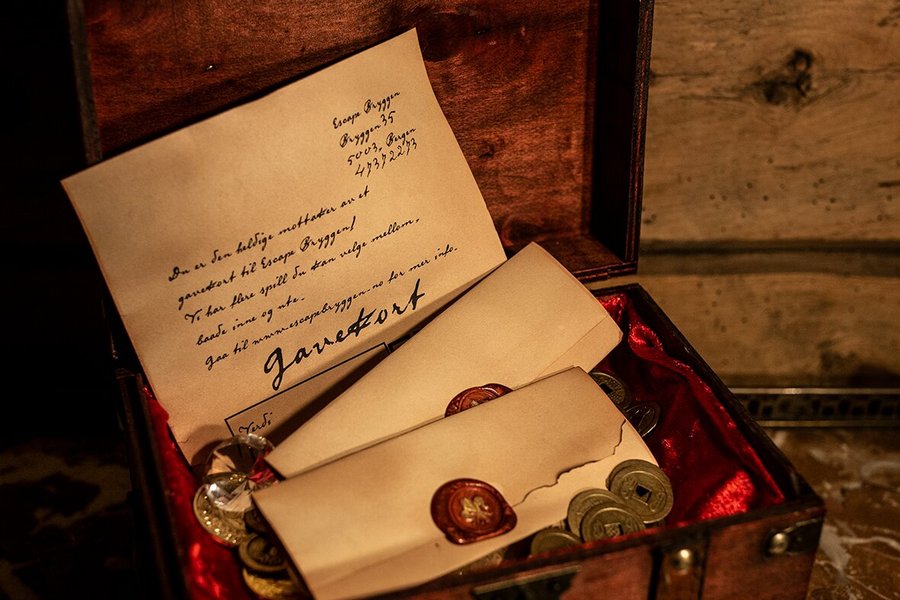 Escape Bryggen
Bryggen 35
5003, Bergen
47372273
Du er den heldige mottaker av et
gavekort til Escape Bryggen!
Vi har flere spill du kan velge mellom,
baade inne og ute.
Gaa til www.escapebryggen.no for mer info.
Gavekort
Verdi